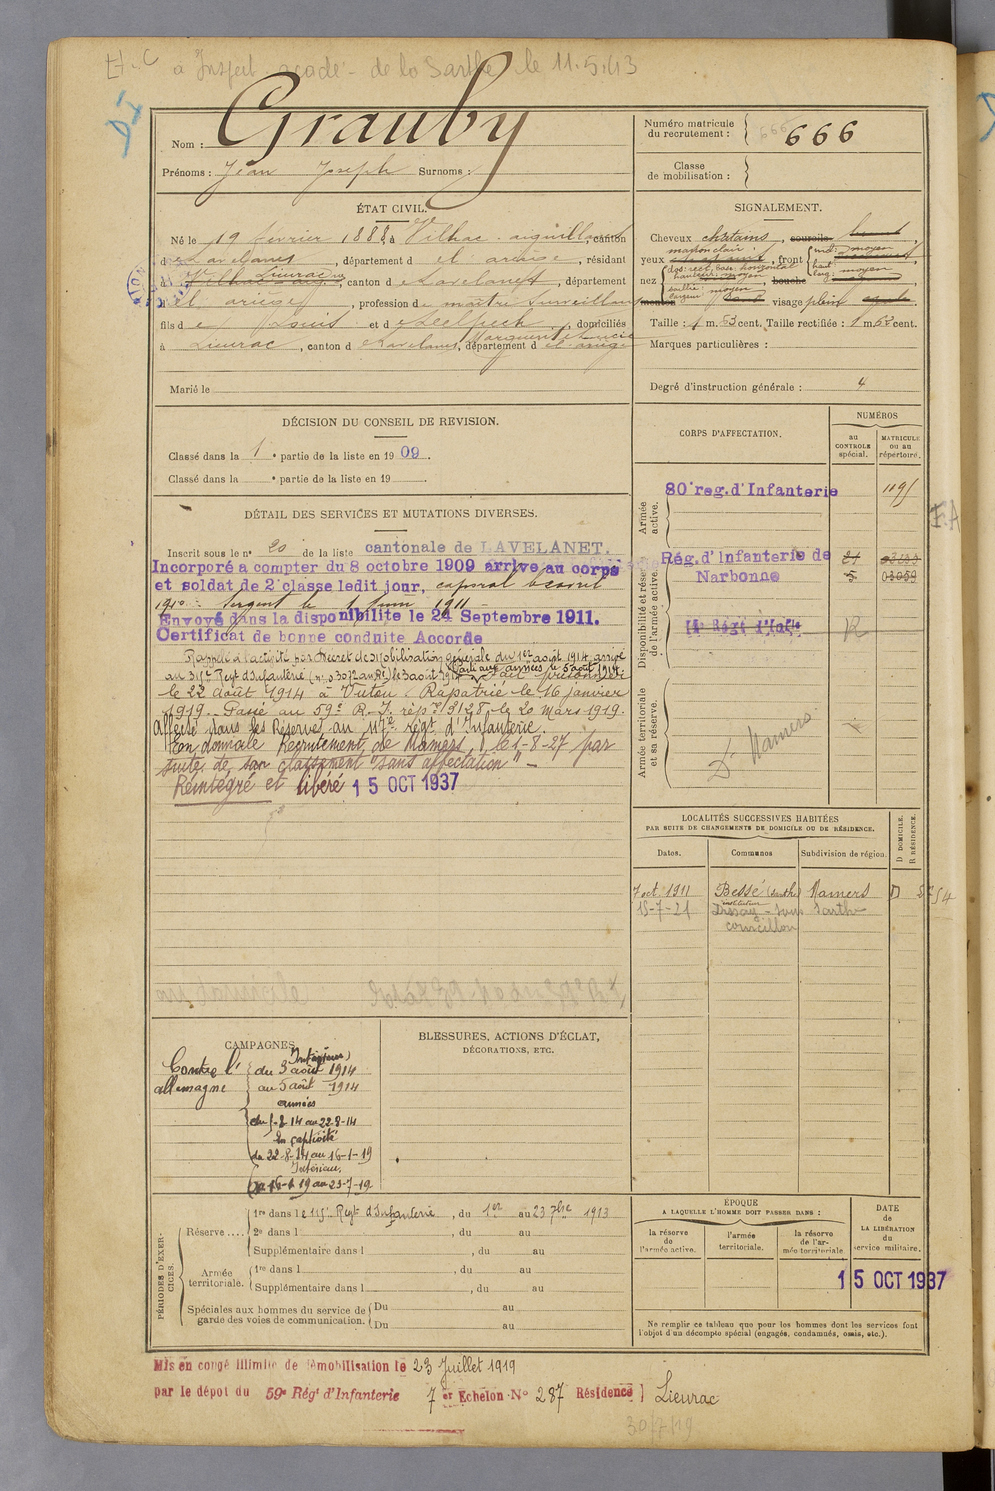 à Inspect. acadé - de la Sarthe le 11.5.43
Nom : Grauby
Prénoms : Jean Joseph Surnoms :
Numéro matricule du recrutement : 666
Classe de mobilisation :
ÉTAT CIVIL.
Né le 19 février 1888, à Vilhac-aiguillanes, canton
de Lavelanet, département de l ariège, résidant
à Lieurac, canton de Lavelanet, département
de l ariège, profession de maître surveillant
fils de Louis et de Delpech Marguerite Lucie, domiciliés
à Lieurac, canton de Lavelanet, département de l ariège
Marié le
SIGNALEMENT.
Cheveux chatains, sourcils
yeux marron clair, front { incl: moyen
haut
larg: moyen
nez { dos: rect, bas: horizontal
hauteur: moyen
saillie: moyen
largeur: moyen, bouche
menton visage plein
Taille : 1 m. 63 cent. Taille rectifiée : 1 m. 63 cent.
Marques particulières :
Degré d'instruction générale : 4
DÉCISION DU CONSEIL DE REVISION.
Classé dans la 1 e partie de la liste en 1909.
Classé dans la e partie de la liste en 19
DÉTAIL DES SERVICES ET MUTATIONS DIVERSES.
Inscrit sous le n° 20 de la liste cantonale de LAVELANET.
Incorporé a compter du 8 octobre 1909 arrive au corps
et soldat de 2e classe ledit jour, caporal le 8 avril
1910 - Sergent le 1 Juin 1911 -
Envoyé dans la disponibilite le 24 Septembre 1911.
Certificat de bonne conduite Accorde
Rappelé à l'activité par Décret de Mobilisation Générale du 1er août 1914, arrivé
au 317e Regt d'Infanterie (n° 03072 au Rl) le 3 août 1914. Parti aux armées le 5 août 1914. Fait prisonnier
le 22 août 1914 à Virton. Rapatrié le 16 janvier
1919. Passé au 59e R.I. rép. S/3128, le 20 mars 1919.
Affecté dans les Réserves au 117e régt d'Infanterie.
En domicile Recrutement de Mamers, le 1-8-27 par
suite de son classement "sans affectation" -
Réintégré et libéré 15 OCT 1937
CORPS D'AFFECTATION.
NUMÉROS
au CONTROLE spécial.
MATRICULE OU AU répertoire.
Armée active.
80e reg. d'Infanterie 1191
Disponibilité et réserve de l'armée active.
Rég. d'Infanterie de 21 03155
Narbonne 5 03059
Régt d'Infie R
Armée territoriale et sa réserve.
Dt Mamers
LOCALITÉS SUCCESSIVES HABITÉES
PAR SUITE DE CHANGEMENTS DE DOMICILE OU DE RÉSIDENCE.
Dates. Communes Subdivision de région. D DOMICILE. R RÉSIDENCE.
7 oct 1911 Bessé (Sarthe) Mamers D
15-7-21 Dissay-sous Sarthe
instituteur
courcillon
CAMPAGNES.
Contre l'allemagne
Intérieur
du 3 août 1914
au 5 août 1914
armées
du 5-8-14 au 22-8-14
En captivité
du 22-8-14 au 16-1-19
Intérieur.
du 16-1-19 au 23-7-19
BLESSURES, ACTIONS D'ÉCLAT,
DÉCORATIONS, ETC.
PÉRIODES D'EXERCICES.
Réserve .... { 1re dans l e 115e Regt d'Infanterie, du 1er au 23 7bre 1913
2e dans l , du au
Supplémentaire dans l , du au
Armée territoriale. { 1re dans l , du au
Supplémentaire dans l , du au
Spéciales aux hommes du service de garde des voies de communication. { Du au
Du au
ÉPOQUE
A LAQUELLE L'HOMME DOIT PASSER DANS :
la réserve de l'armée active.
l'armée territoriale.
la réserve de l'armée territoriale.
DATE de LA LIBÉRATION du service militaire.
15 OCT 1937
Ne remplir ce tableau que pour les hommes dont les services font
l'objet d'un décompte spécial (engagés, condamnés, omis, etc.).
Mis en congé illimité de démobilisation le 23 Juillet 1919
par le dépot du 59e Régt d'Infanterie 7e Echelon N° 287 Résidence } Lieurac
30/7/19